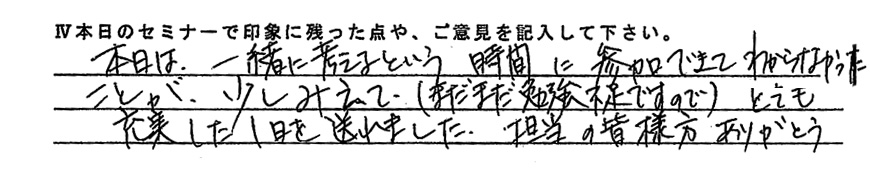 Ⅳ本日のセミナーで印象に残った点や、ご意見を記入して下さい。
本日は、一緒に考えるという時間に参加できてわからなかった
ことが、少しみえて、(まだまだ勉強不足ですので)とても
充実した1日を送れました。担当の皆様方ありがとう